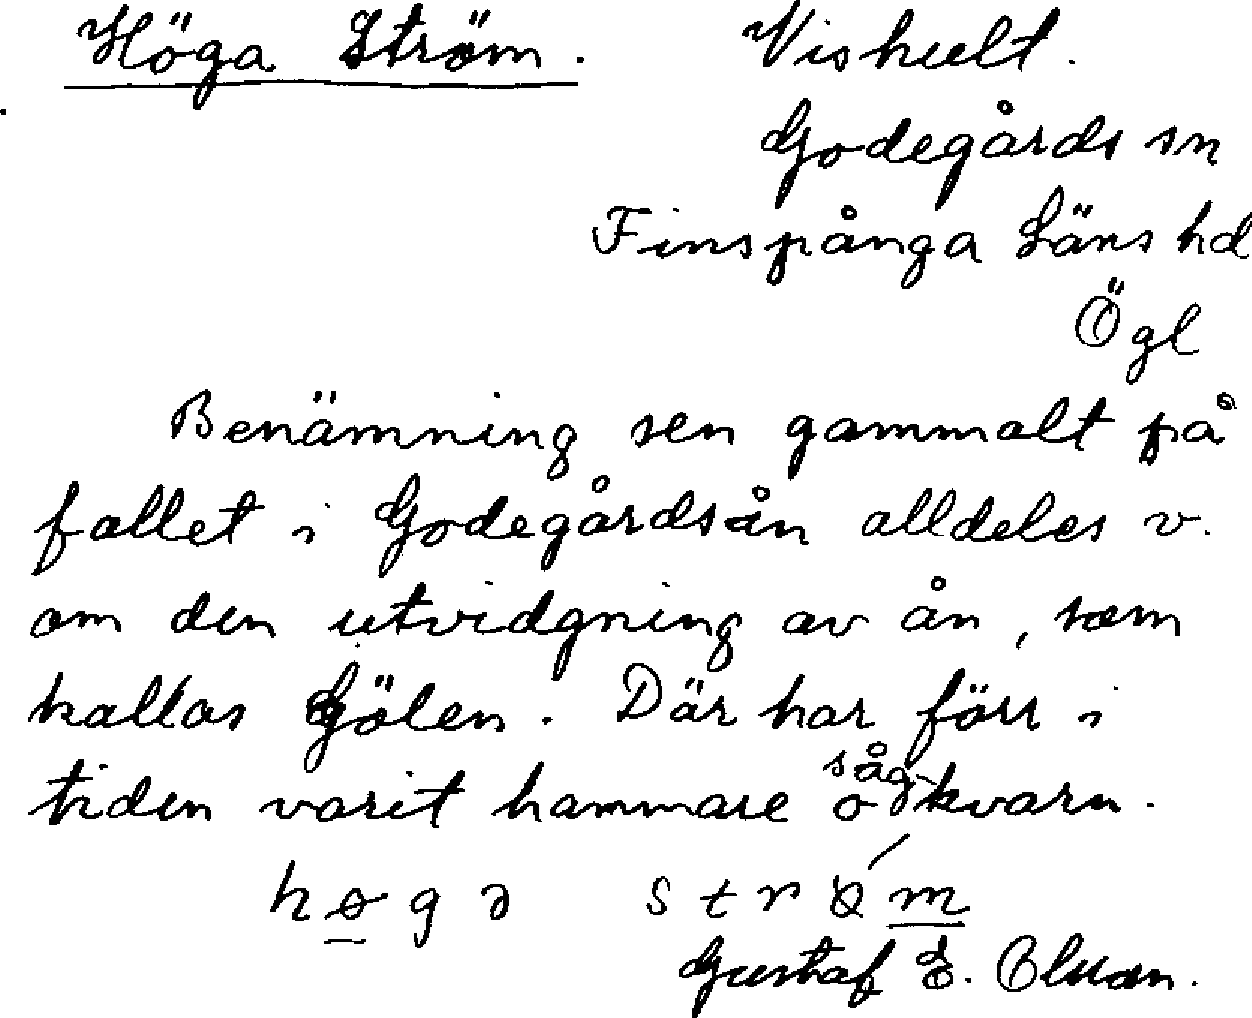 Höga Ström. Vishult.
Godegårds sn
Finspånga Läns hd
Ögl
Benämning sen gammalt på
fallet i Godegårdsån alldeles v.
om den utvidgning av ån, som
kallas Gölen. Där har förr i
tiden varit hammare såg- o kvarn.
høgə strø´m
Gustaf E. Olsson.